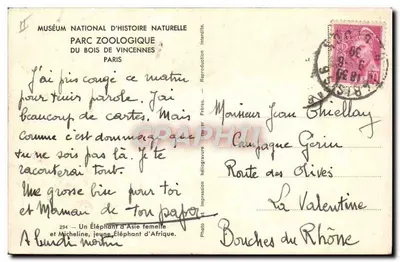 II
MUSÉUM NATIONAL D'HISTOIRE NATURELLE
PARC ZOOLOGIQUE
DU BOIS DE VINCENNES
PARIS
J'ai pris congé ce matin
pour tenir parole. J'ai
beaucoup de cartes. Mais
comme c'est dommage que
tu ne sois pas là. Je te
raconterai tout.
Une grosse bise pour toi
et Maman de ton papa
294 - Un Éléphant d'Asie femelle
et Micheline, jeune Éléphant d'Afrique.
A lundi matin
Reproduction interdite.
Photo Impression héliogravure et Frères.
Monsieur Jean Thiellay
Campagne Gerin
Route des Olives
La Valentine
Bouches du Rhône